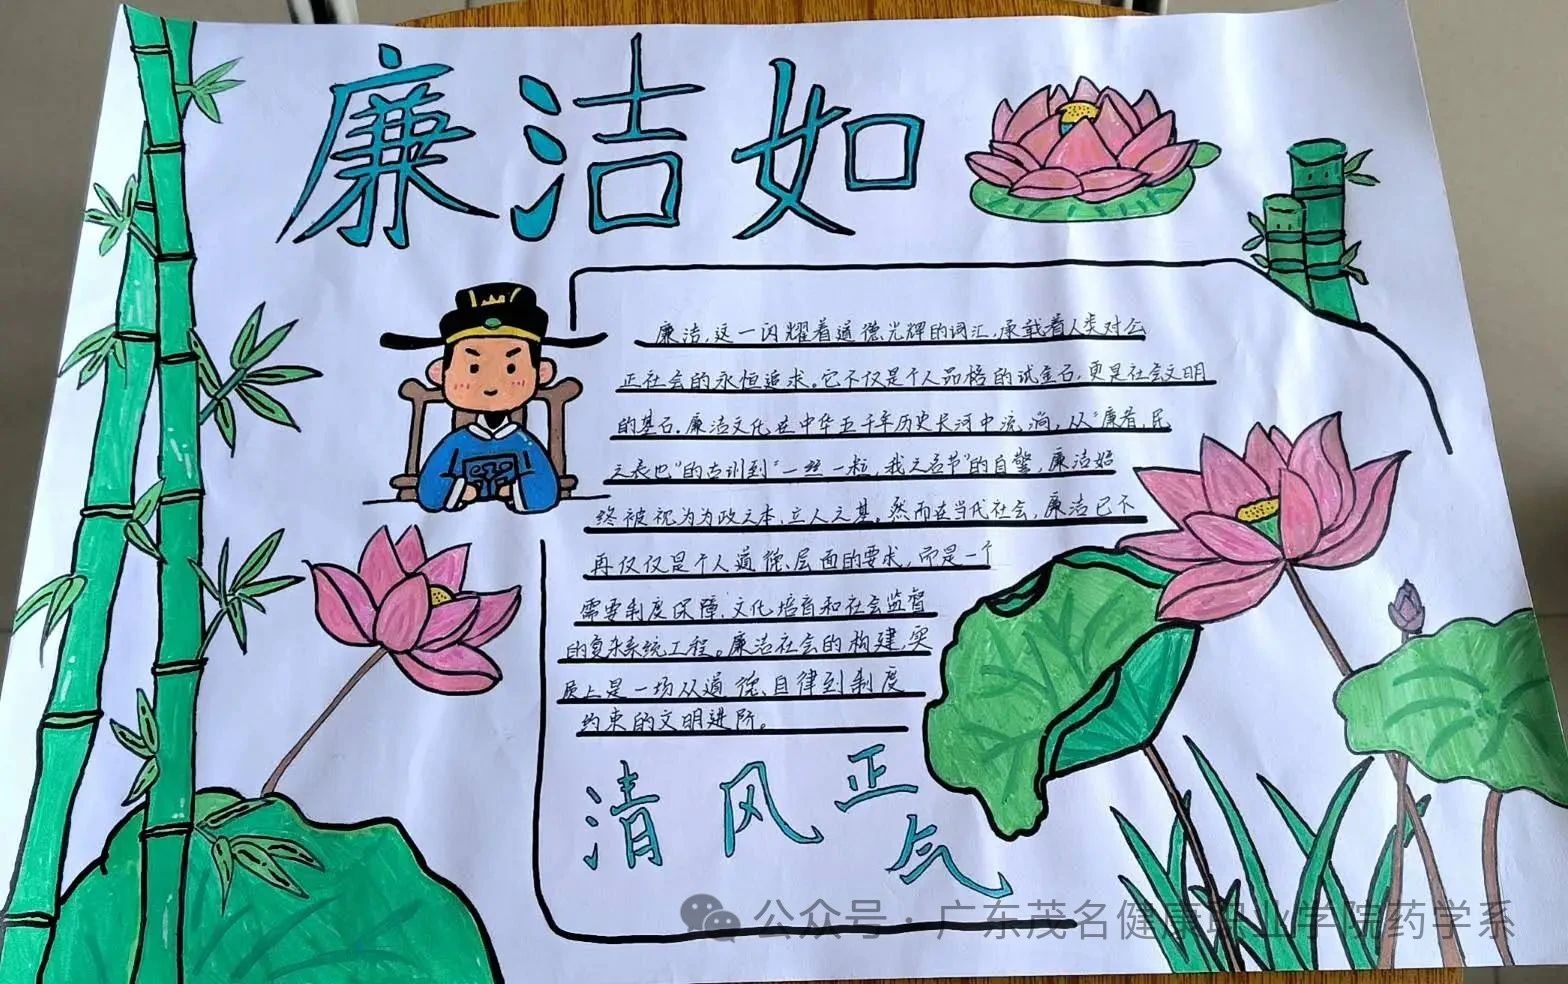 廉洁如
廉洁，这一闪耀着道德光辉的词汇，承载着人类对公
正社会的永恒追求。它不仅是个人品格的试金石，更是社会文明
的基石。廉洁文化在中华五千年历史长河中流淌，从“廉者，民
之表也”的古训到“一丝一粒，我之名节”的自警，廉洁始
终被视为为政之本，立人之基。然而在当代社会，廉洁已不
再仅仅是个人道德层面的要求，而是一个
需要制度保障、文化培育和社会监督
的复杂系统工程。廉洁社会的构建，实
质上是一场从道德自律到制度
约束的文明进阶。
清风正气
公众号·广东茂名健康职业学院药学系